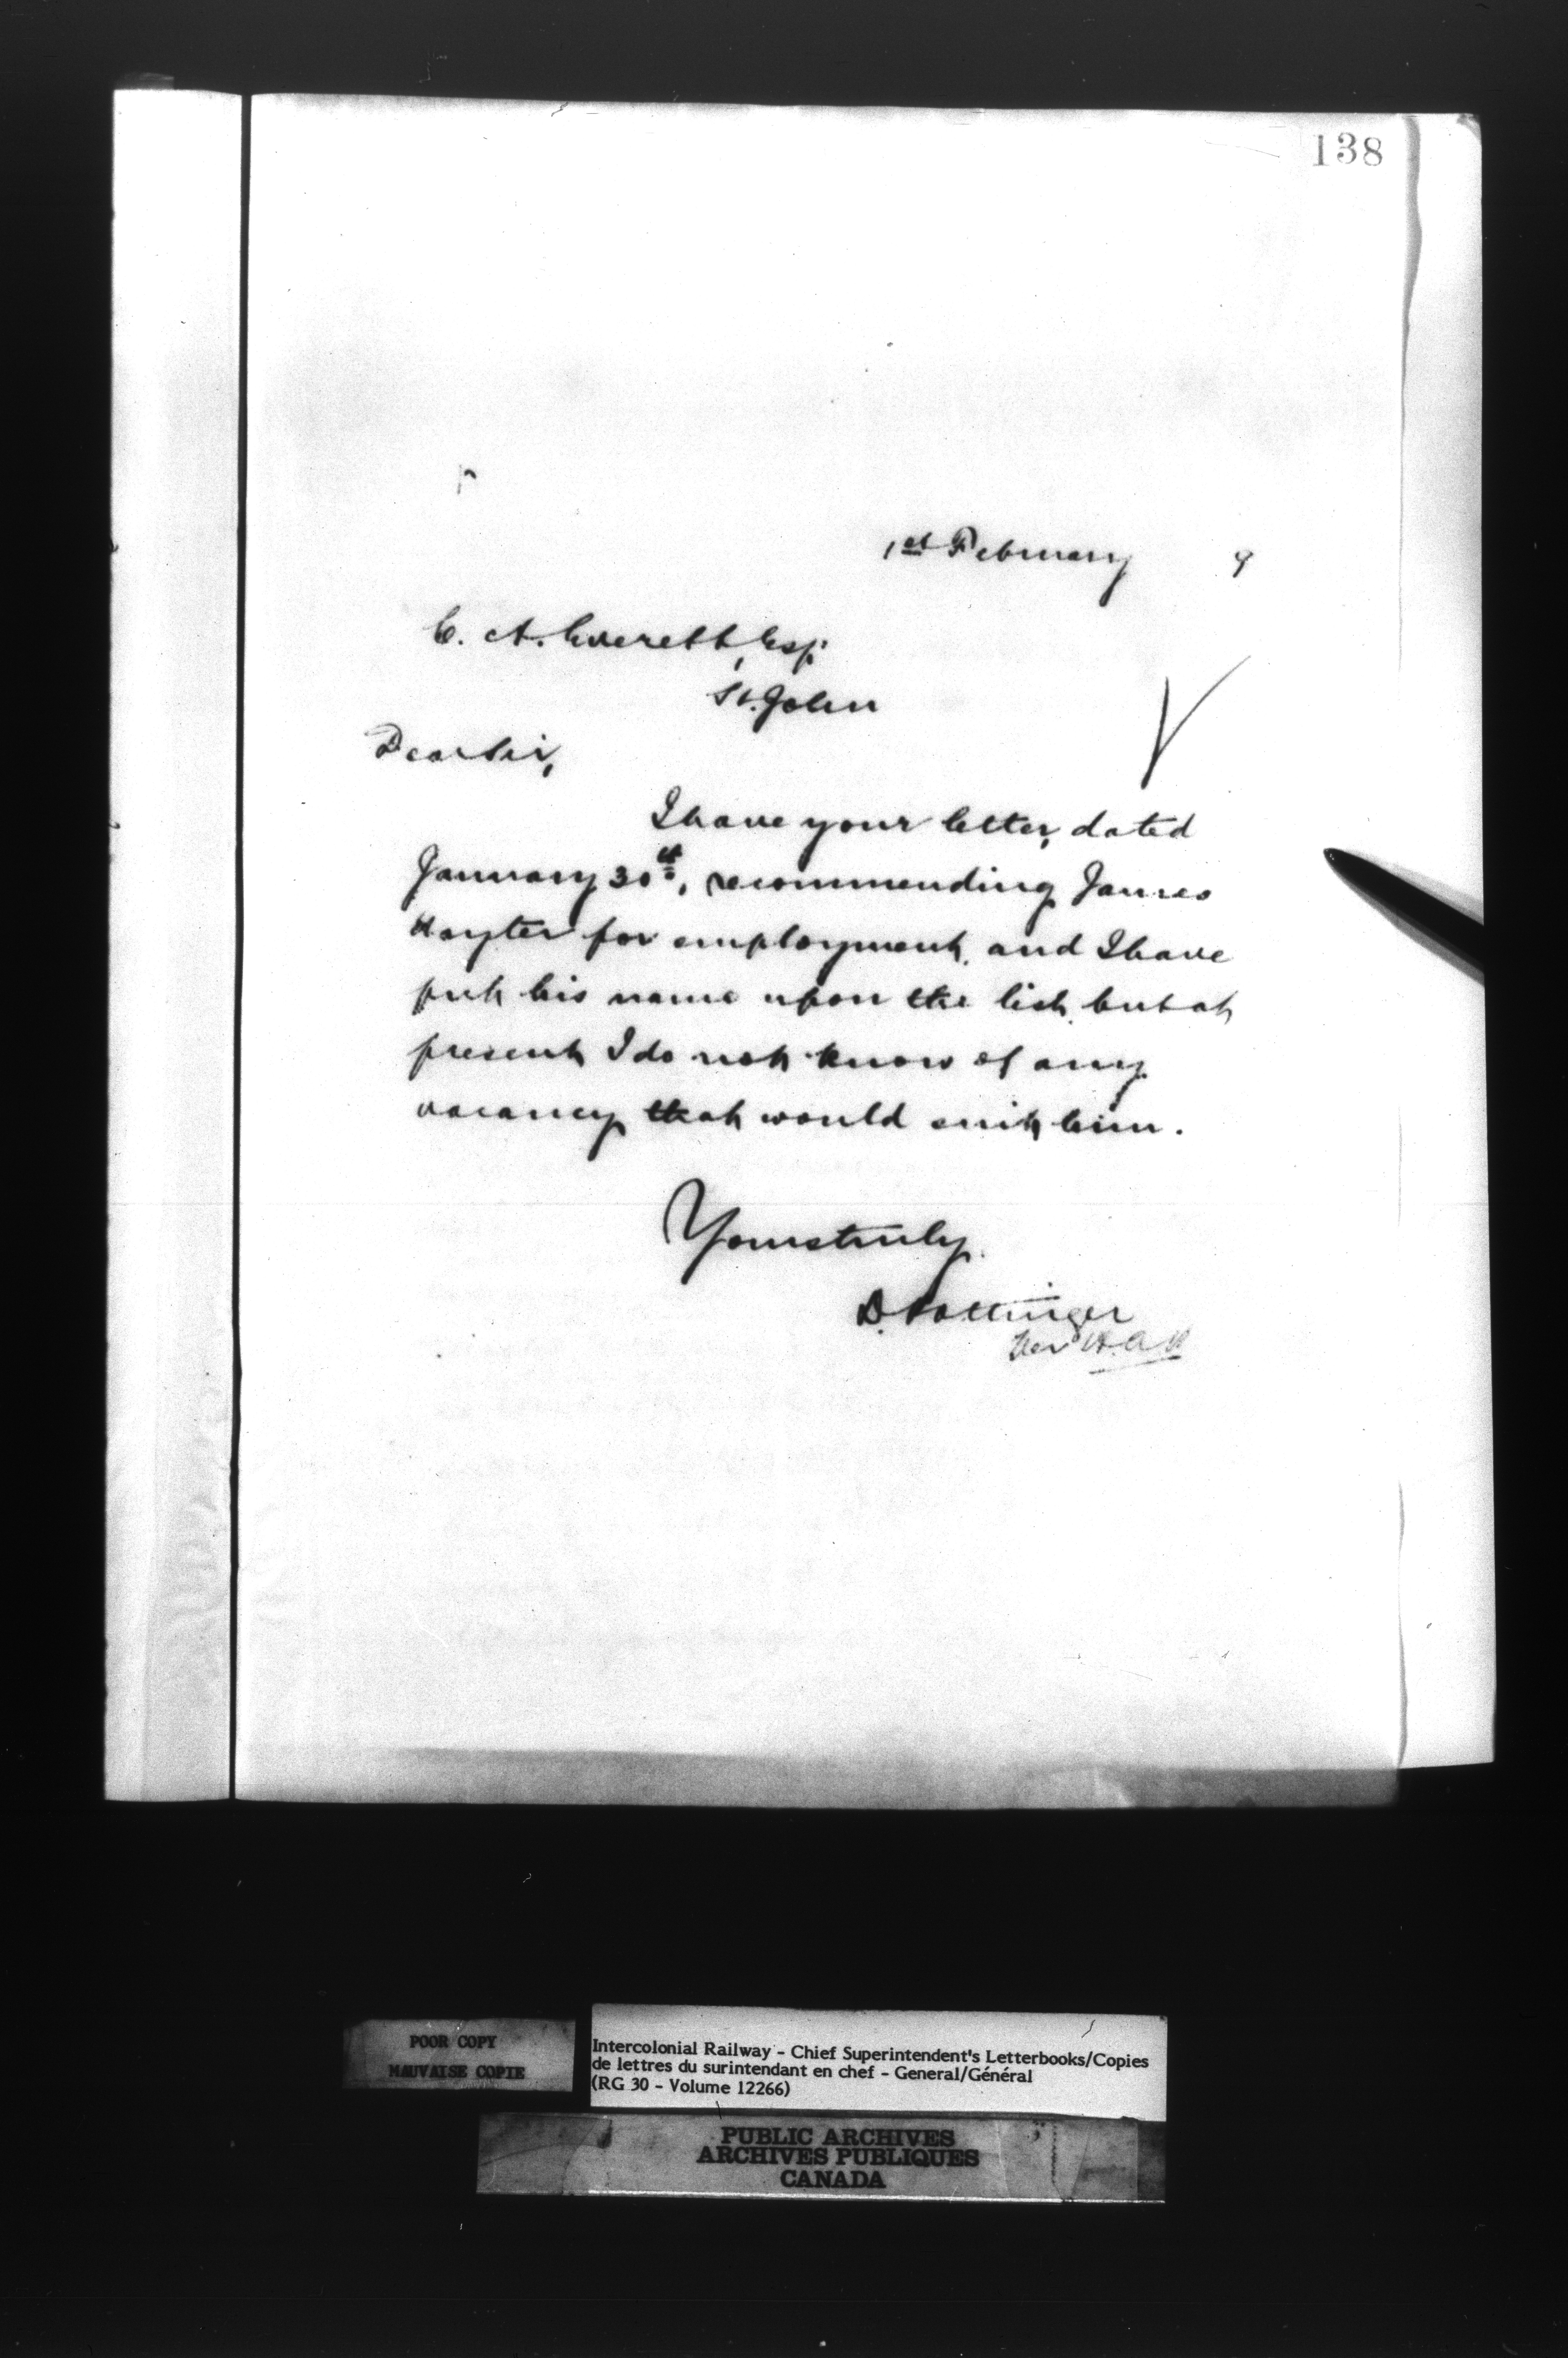 138
1st February 9
C. A. Everett, Esq.
St. John
Dear Sir,
I have your letter, dated
January 30th, recommending James
Hayter for employment, and I have
put his name upon the list, but at
present I do not know of any
vacancy that would suit him.
Yours truly,
D. Pottinger
Per
POOR COPY
MAUVAISE COPIE
Intercolonial Railway - Chief Superintendent's Letterbooks/Copies
de lettres du surintendant en chef - General/Général
(RG 30 - Volume 12266)
PUBLIC ARCHIVES
ARCHIVES PUBLIQUES
CANADA